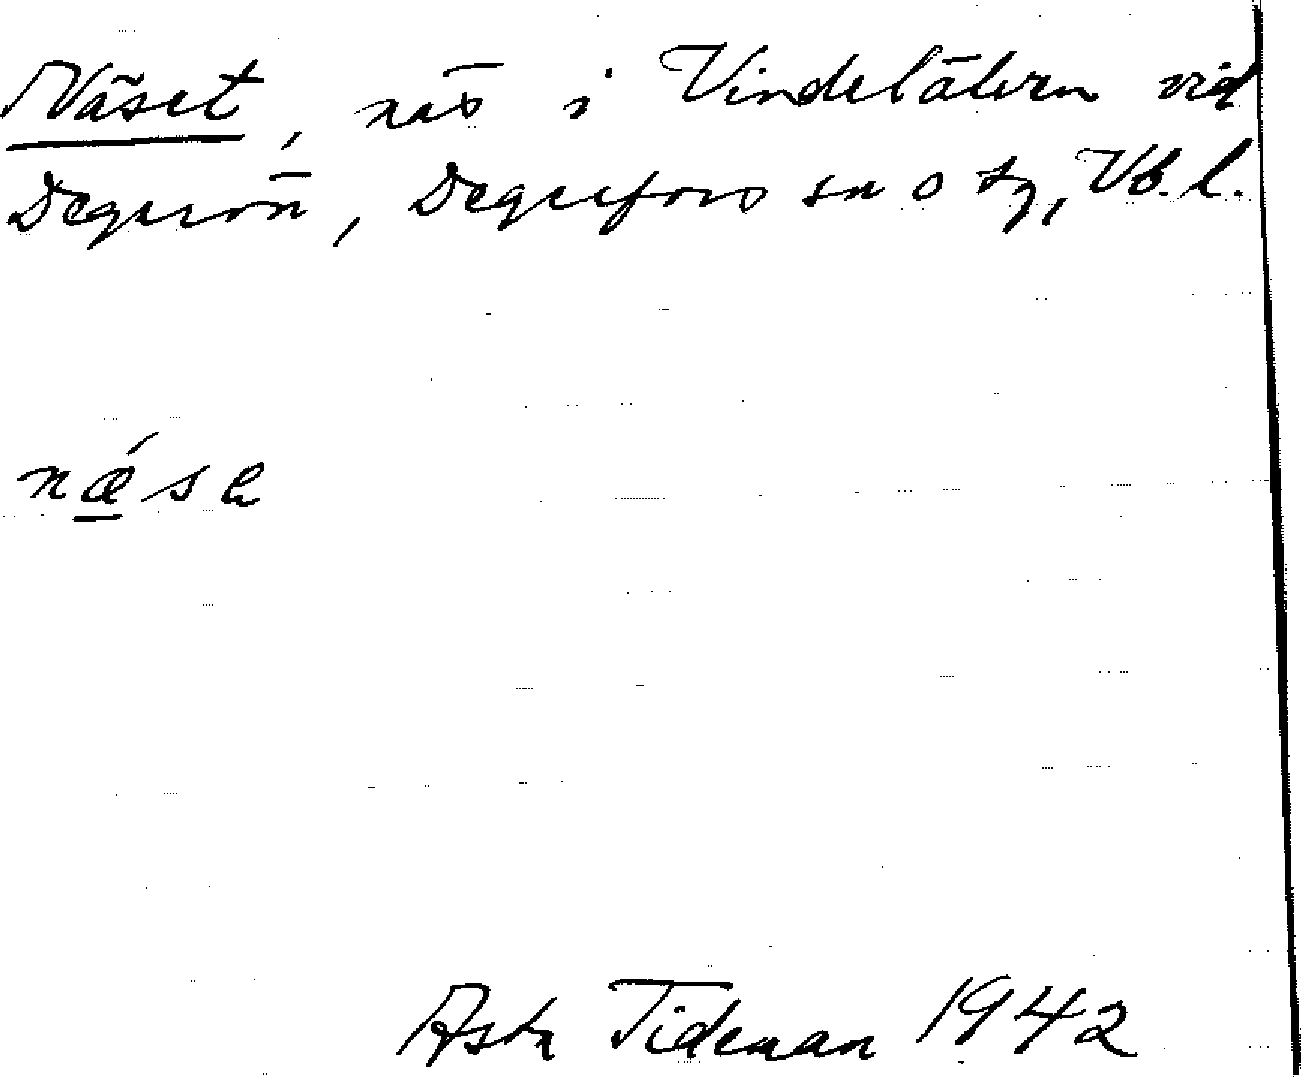 Näset, näs i Vindelälven vid
Degerön, Degerfors sn o tg, Vb. l.
nǽse
Asta Tideman 1942